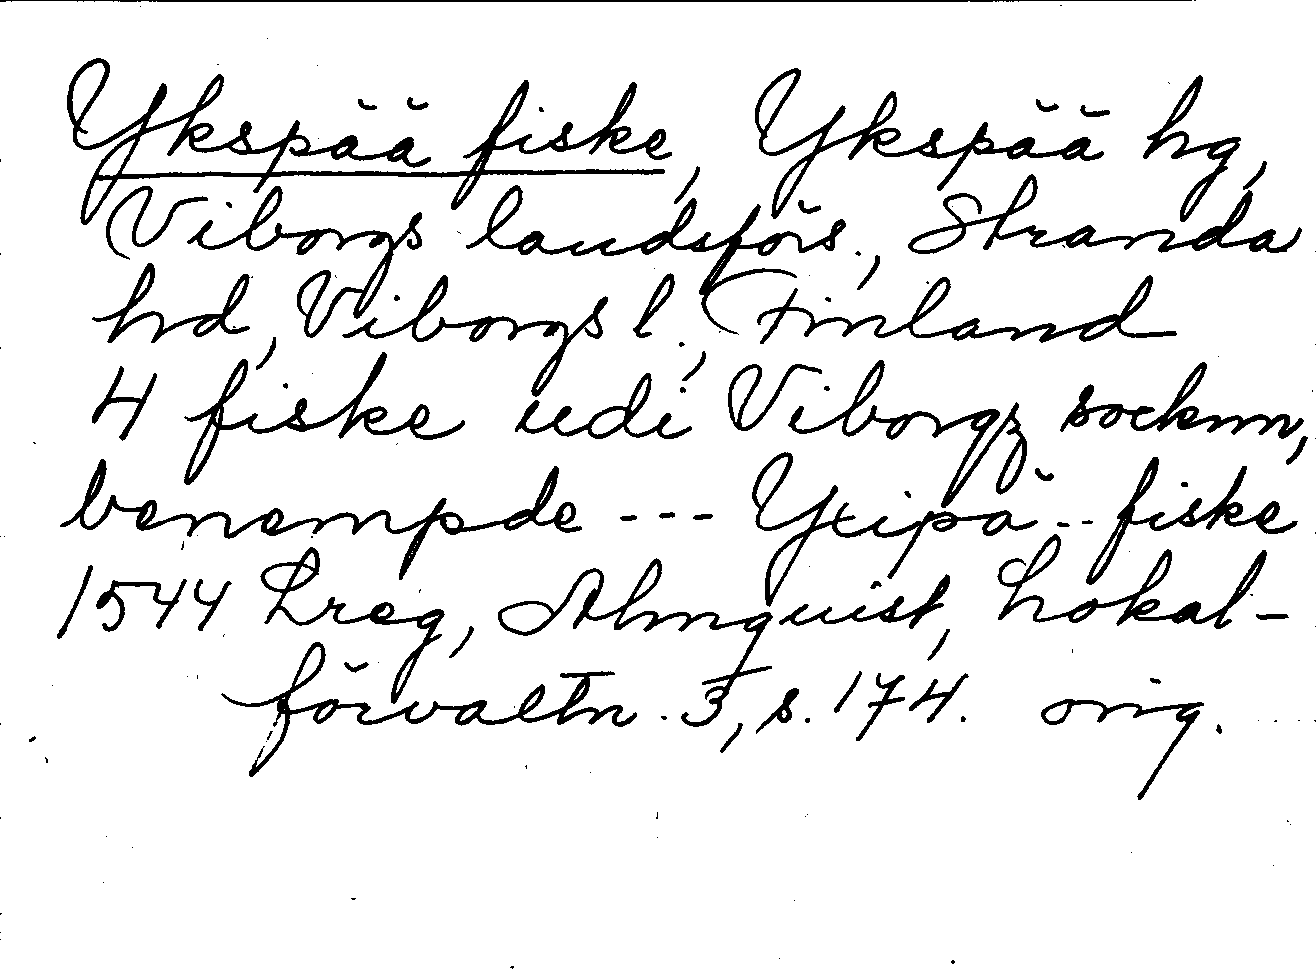 Ykspää fiske, Ykspää hg,
Viborgs landsförs., Stranda
hd, Viborgs l., Finland
4 fiske udi Viborgz socknn,
benempde --- Yxipä -- fiske
1544 Lreg, Almquist, Lokal-
förvaltn. 3, s. 174. orig.